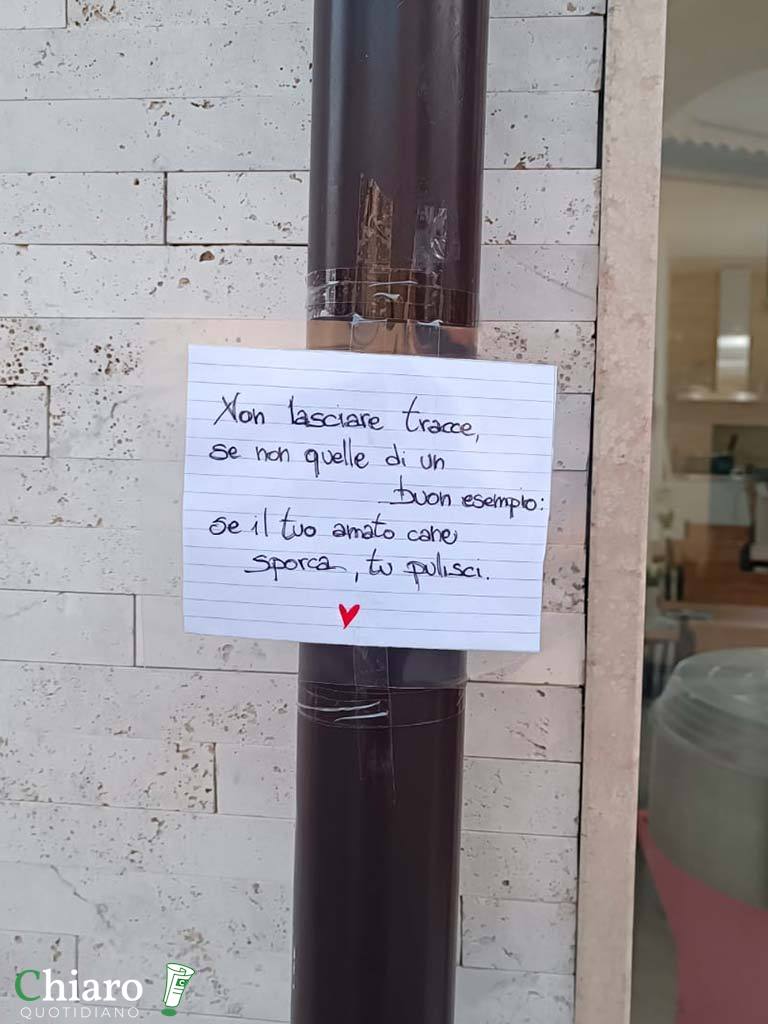 Non lasciare tracce,
se non quelle di un
buon esempio:
se il tuo amato cane
sporca, tu pulisci.
Chiaro
QUOTIDIANO